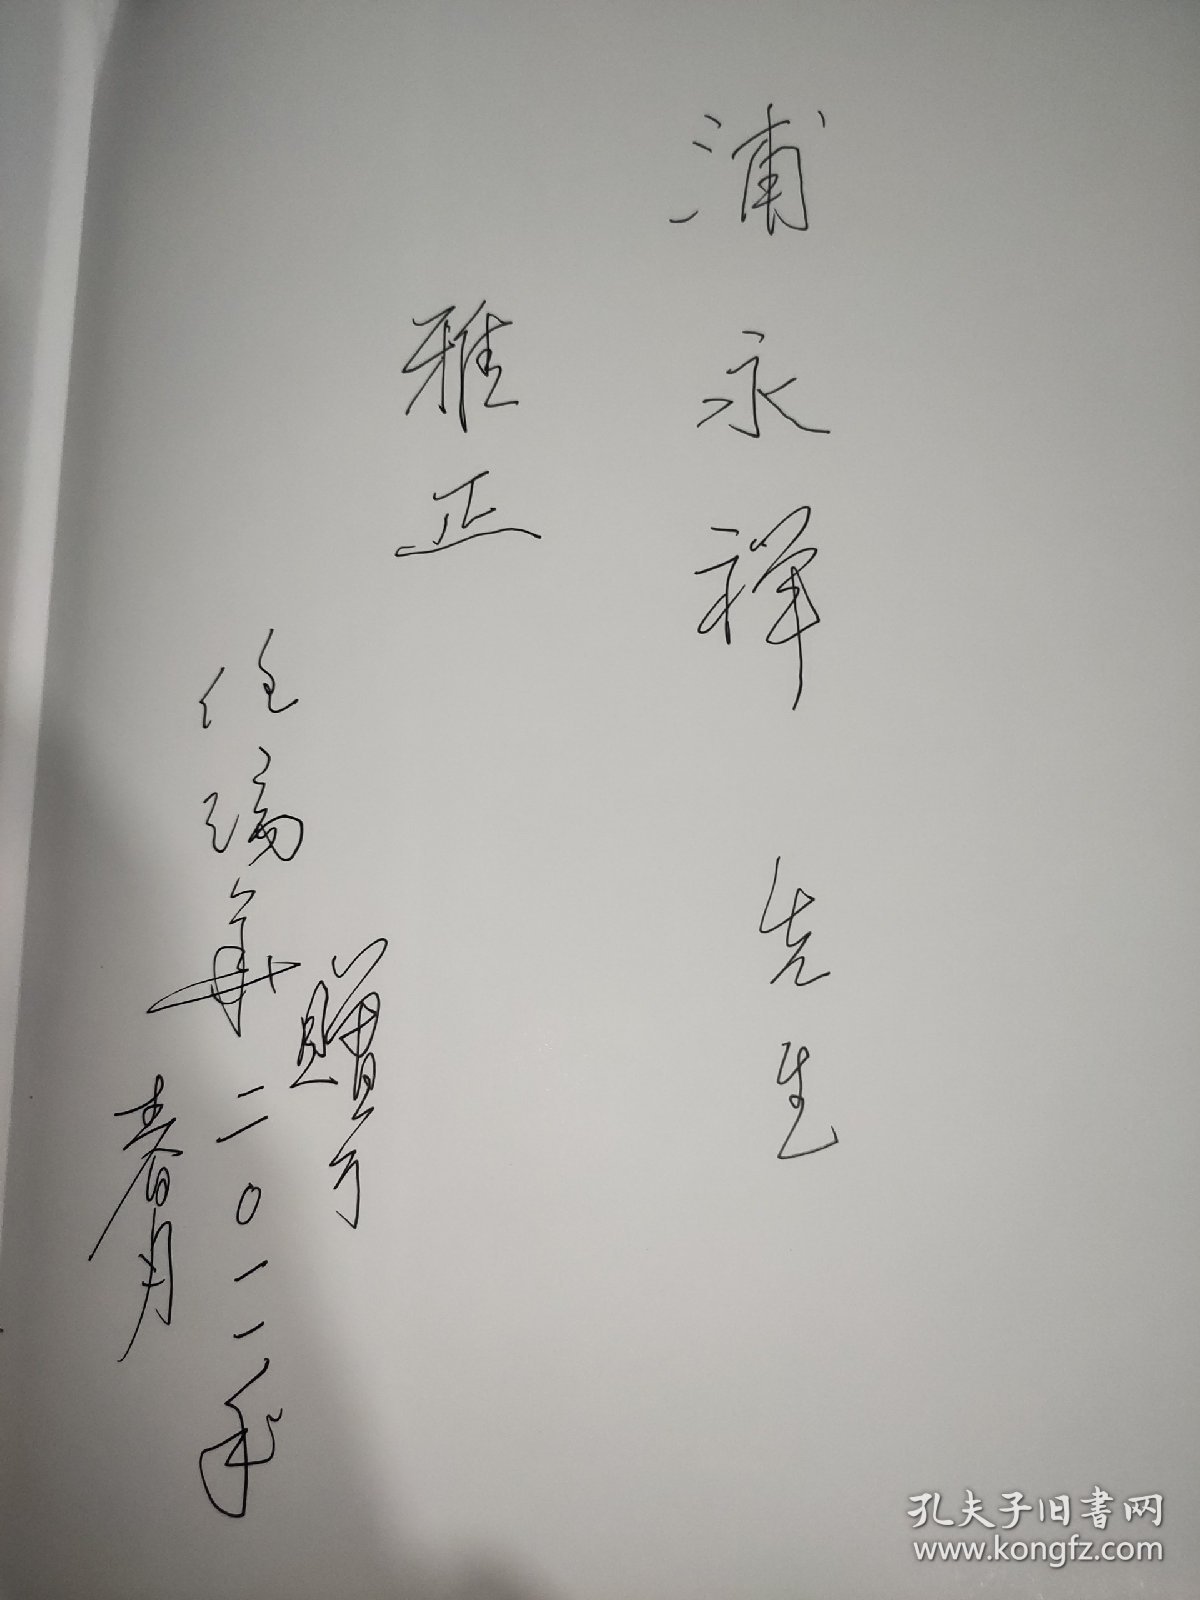 浦永祥 先生
雅正
任瑞华
赠于
二〇一一年
春月
孔夫子旧书网
www.kongfz.com